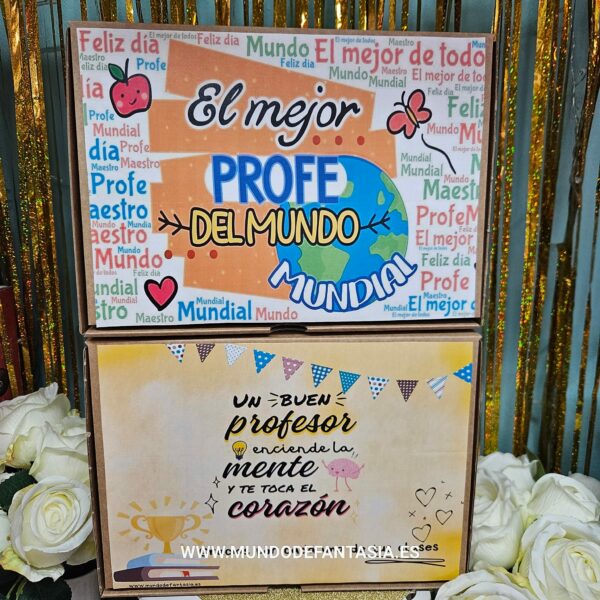 Feliz día
Profe
Feliz día
Mundo
El mejor de todos
Maestro
Feliz día
Profe
Mundo
Mundial
Maestro
Mundo
El mejor de todo
El mejor de to
Maestro
Mundial
día
Profe
Mundial
Maestro
Profe
Mundial
aestro
Mundo
Feliz día
El mejor
PROFE
DEL MUNDO
MUNDIAL
Feliz
Mundial
Mundo
Maestr
Profe
El mejor
Mundo
Profe
Feliz día
Maestro
El mejor d
undial
Feliz día
Maestro
Mundial
Mundial
Mundo
Mundial
El mejor de todos
UN BUEN
profesor
enciende la
mente
Y TE TOCA EL
corazón
WWW.MUNDODEFANTASIA.ES
www.mundodefantasia.es